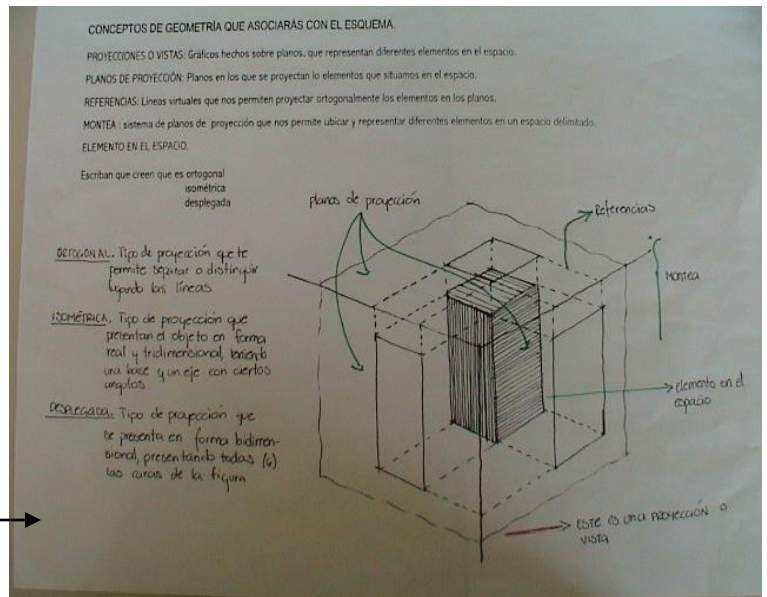 CONCEPTOS DE GEOMETRÍA QUE ASOCIARÁS CON EL ESQUEMA.
PROYECCIONES O VISTAS: Gráficos hechos sobre planos, que representan diferentes elementos en el espacio.
PLANOS DE PROYECCIÓN: Planos en los que se proyectan lo elementos que situamos en el espacio.
REFERENCIAS: Líneas virtuales que nos permiten proyectar ortogonalmente los elementos en los planos.
MONTEA : sistema de planos de proyección que nos permite ubicar y representar diferentes elementos en un espacio delimitado.
ELEMENTO EN EL ESPACIO.
Escriban que creen que es ortogonal
isométrica
desplegada
ORTOGONAL. Tipo de proyección que te
permite separar o distinguir
las líneas
ISOMÉTRICA. Tipo de proyección que
presentan el objeto en forma
real y tridimensional, teniendo
una base y un eje con ciertos
angulos
DESPLEGADA. Tipo de proyección que
se presenta en forma bidimen-
sional, presentando todas (6)
las caras de la figura
planos de proyección
Referencias
Montea
elemento en el
espacio
ESTE ES UNA PROYECCIÓN O
VISTA